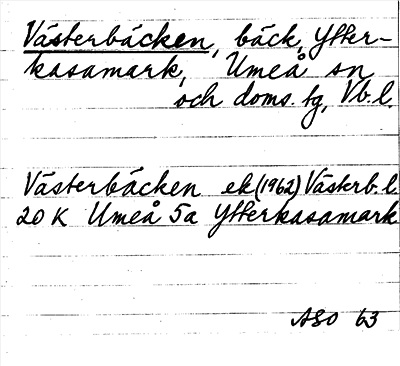 Västerbäcken, bäck, Ytter-
kasamark, Umeå sn
och doms. tg, Vb.l.
Västerbäcken ek(1962) Västerb.l.
20 K Umeå 5a Ytterkasamark
ASO 63